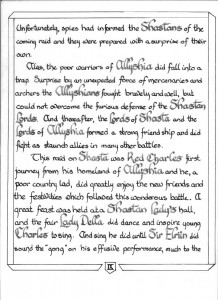 Unfortunately, spies had informed the Shastans of the
coming raid and they were prepared with a surprise of their
own.
Alas, the poor warriors of Allyshia did fall into a
trap. Surprise by an unexpected force of mercenaries and
archers the Allyshians fought bravely and well, but
could not overcome the furious defense of the Shastan
Lords. And thereafter, the Lords of Shasta and the
Lords of Allyshia formed a strong friendship and did
fight as staunch allies in many other battles.
This raid on Shasta was Red Charles' first
journey from his homeland of Allyshia and he, a
poor country lad, did greatly enjoy the new friends and
the festivities which followed this wonderous battle. A
great feast was held at a Shastan Lady's hall,
and the fair Lady Della did dance and inspire young
Charles to sing. And sing he did until Sir
did
sound the "gong" on his effusive performance, much to the
IX